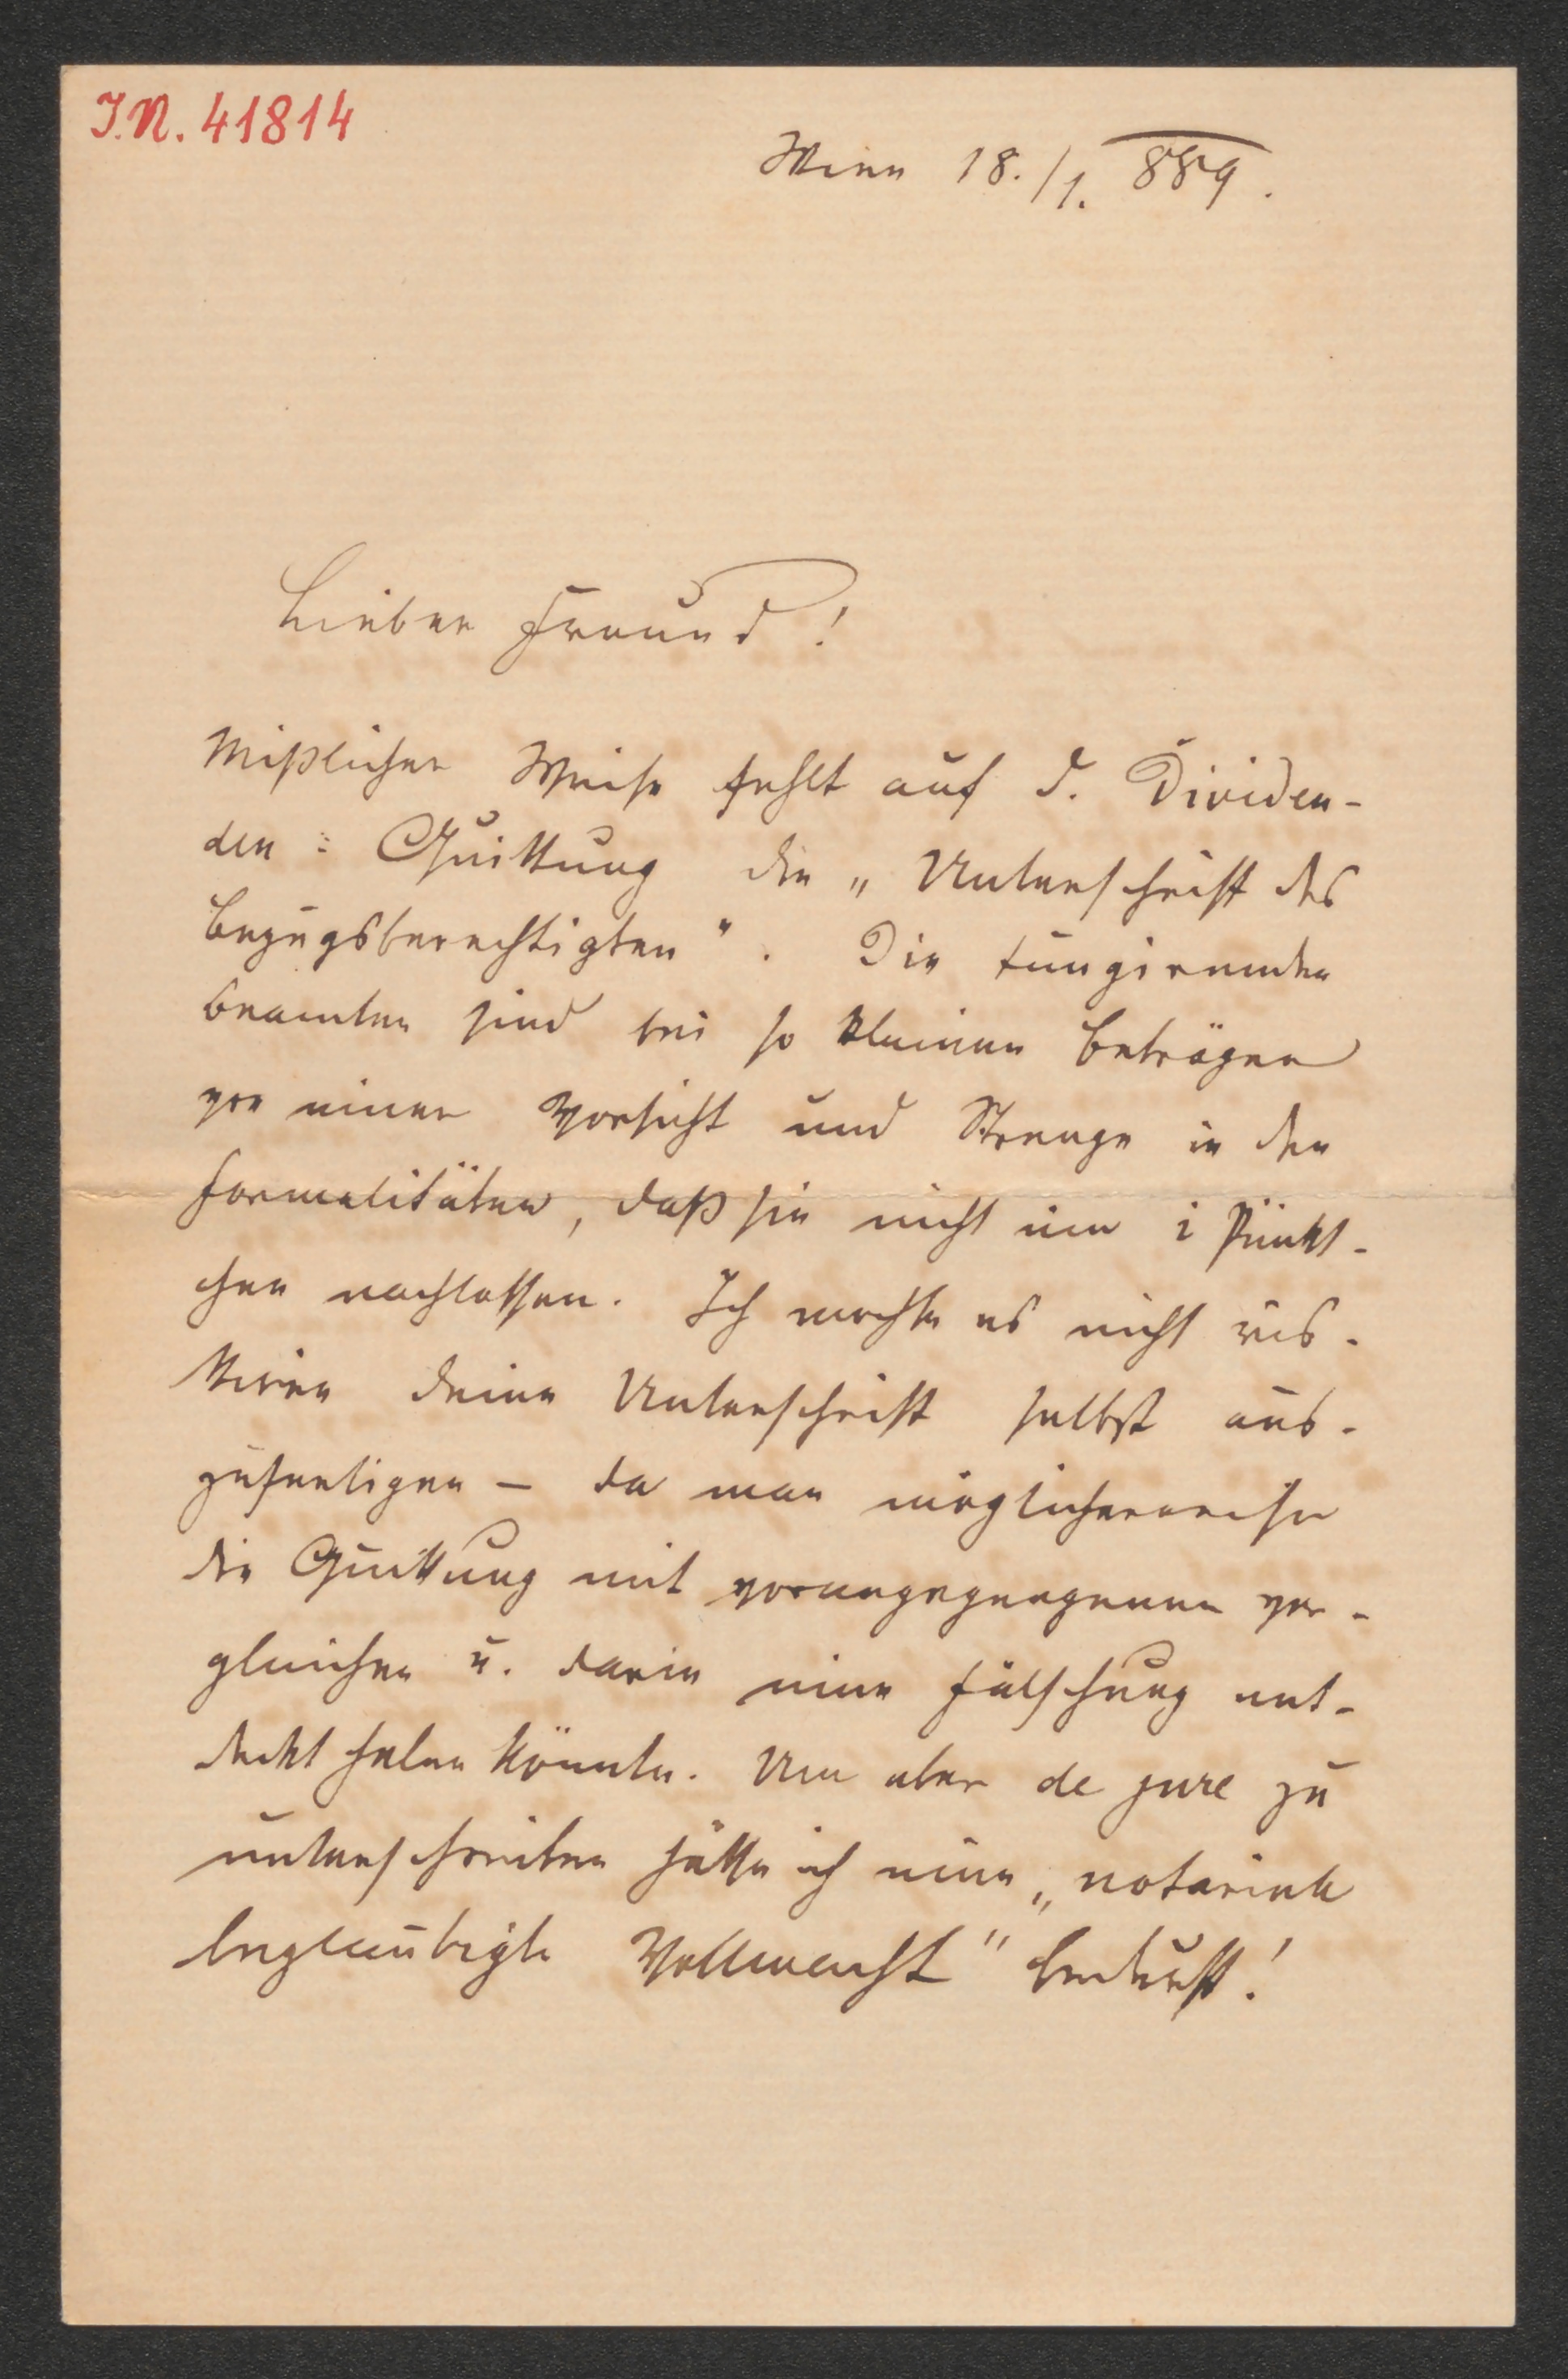 I.N. 41814
Wien 18./1. 889.
Lieber Freund!
Mißlicher Weise fehlt auf d. Dividen-
den-Quittung die „Unterschrift des
Bezugsberechtigten". Die fungirenden
Beamten sind bei so kleinen Beträgen
von einer Vorsicht und Strenge in den
Formalitäten, daß sie nicht um 1 Pünkt-
chen nachlassen. Ich mochte es nicht ris-
kiren deine Unterschrift selbst aus-
zufertigen – da man möglicherweise
die Quittung mit vorangegangenen ver-
gleichen u. darin eine Fälschung ent-
deckt haben könnte. Um aber de jure zu
unterschreiben hätte ich eine „notariele
beglaubigte Vollmacht" bedurft!